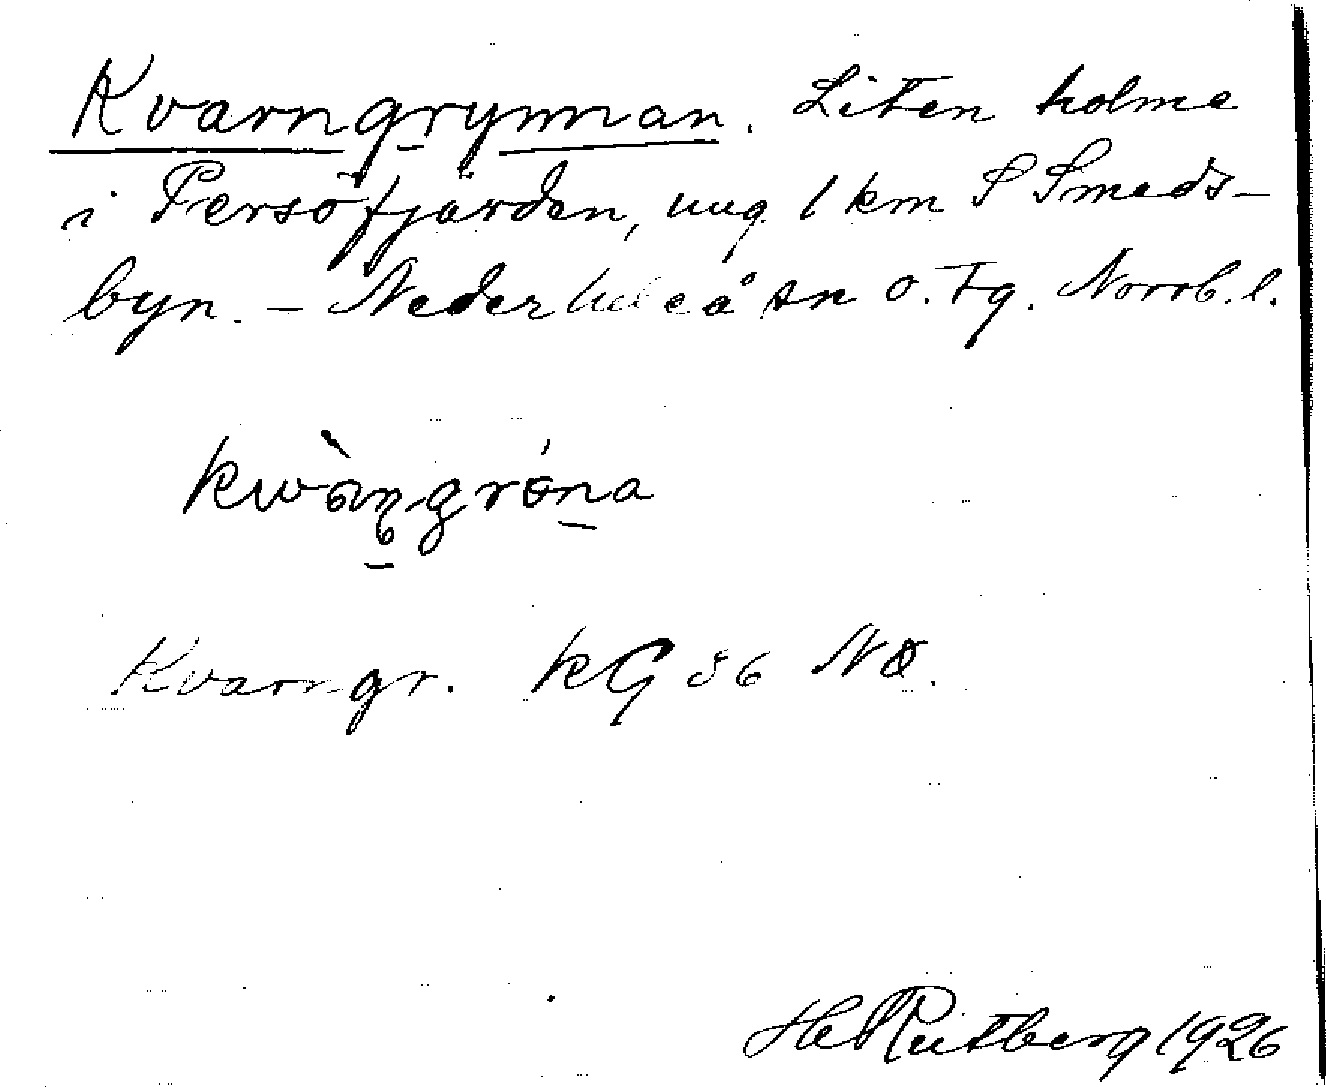 Kvarngrynnan. Liten holme
i Persöfjärden, ung. 1 km S Smeds-
byn. – Nederluleå sn o. Tg. Norrb. l.
Kvarngr. KG 86 NO.
H Rutberg 1926